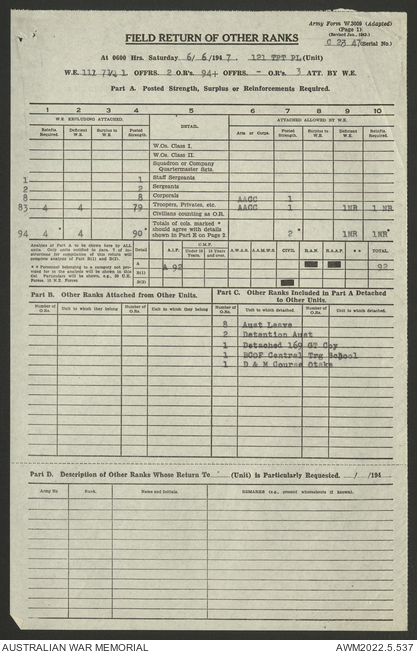 Army Form W.3009 (Adapted)
(Page 1)
(Revised Jan., 1945.)
C 23 47 (Serial No.)
FIELD RETURN OF OTHER RANKS
At 0600 Hrs. Saturday 6/6/1947. 121 TPT PL (Unit)
OFFRS. 2 O.R's. 94+ OFFRS. - O.R's. 3 ATT. BY W.E.
Part A. Posted Strength, Surplus or Reinforcements Required.
1 2 3 4 5 6 7 8 9 10
W.E. EXCLUDING ATTACHED. DETAIL. ATTACHED ALLOWED BY W.E.
Reinfts. Required. Deficient W.E. Surplus to W.E. Posted Strength. Arm or Corps. Posted Strength. Surplus to W.E. Deficient W.E. Reinfts. Required.
W.Os. Class I.
W.Os. Class II.
Squadron or Company Quartermaster Sgts.
1 1 Staff Sergeants
2 2 Sergeants
8 8 Corporals AACC 1
83 4 4 79 Troopers, Privates, etc. AACC 1 1NR 1 NR
Civilians counting as O.R.
94 4 * 4 90 * Totals of cols. marked * should agree with details shown in Part E on Page 2 2 * 1NR 1NR *
Analysis of Part A to be shown here by ALL units.
Detail A.I.F. C.M.F. Under 18 Years. 18 Years and over. A.W.A.S. A.A.M.W.S. CIVIL R.A.N. R.A.A.F. * * TOTAL
A 92 92
B(1)
B(2)
Part B. Other Ranks Attached from Other Units.
Part C. Other Ranks Included in Part A Detached to Other Units.
Number of O.Rs. Unit to which they belong Number of O.Rs. Unit to which they belong Number of O.Rs. Unit to which detached. Number of O.Rs. Unit to which detached.
8 Aust Leave
2 Detention Aust
1 Detached 169 GT Coy
1 BCOF Central Trg School
1 D & M Course Otake
Part D. Description of Other Ranks Whose Return To (Unit) is Particularly Requested. / /194
Army No Rank. Name and Initials. REMARKS (e.g., present whereabouts if known).
AUSTRALIAN WAR MEMORIAL AWM2022.5.537